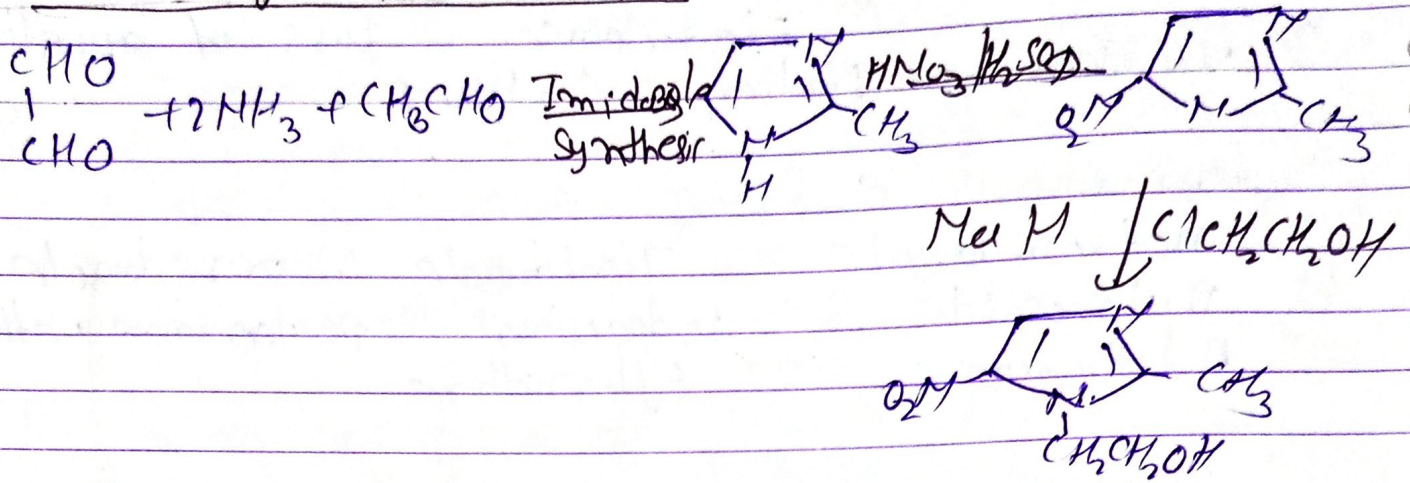 CHO
| + 2 NH3 + CH3CHO Imidazole Synthesis N CH3 N H HNO3/H2SO4 N O2N N CH3
CHO
NaH ClCH2CH2OH
N
O2N N CH3
CH2CH2OH